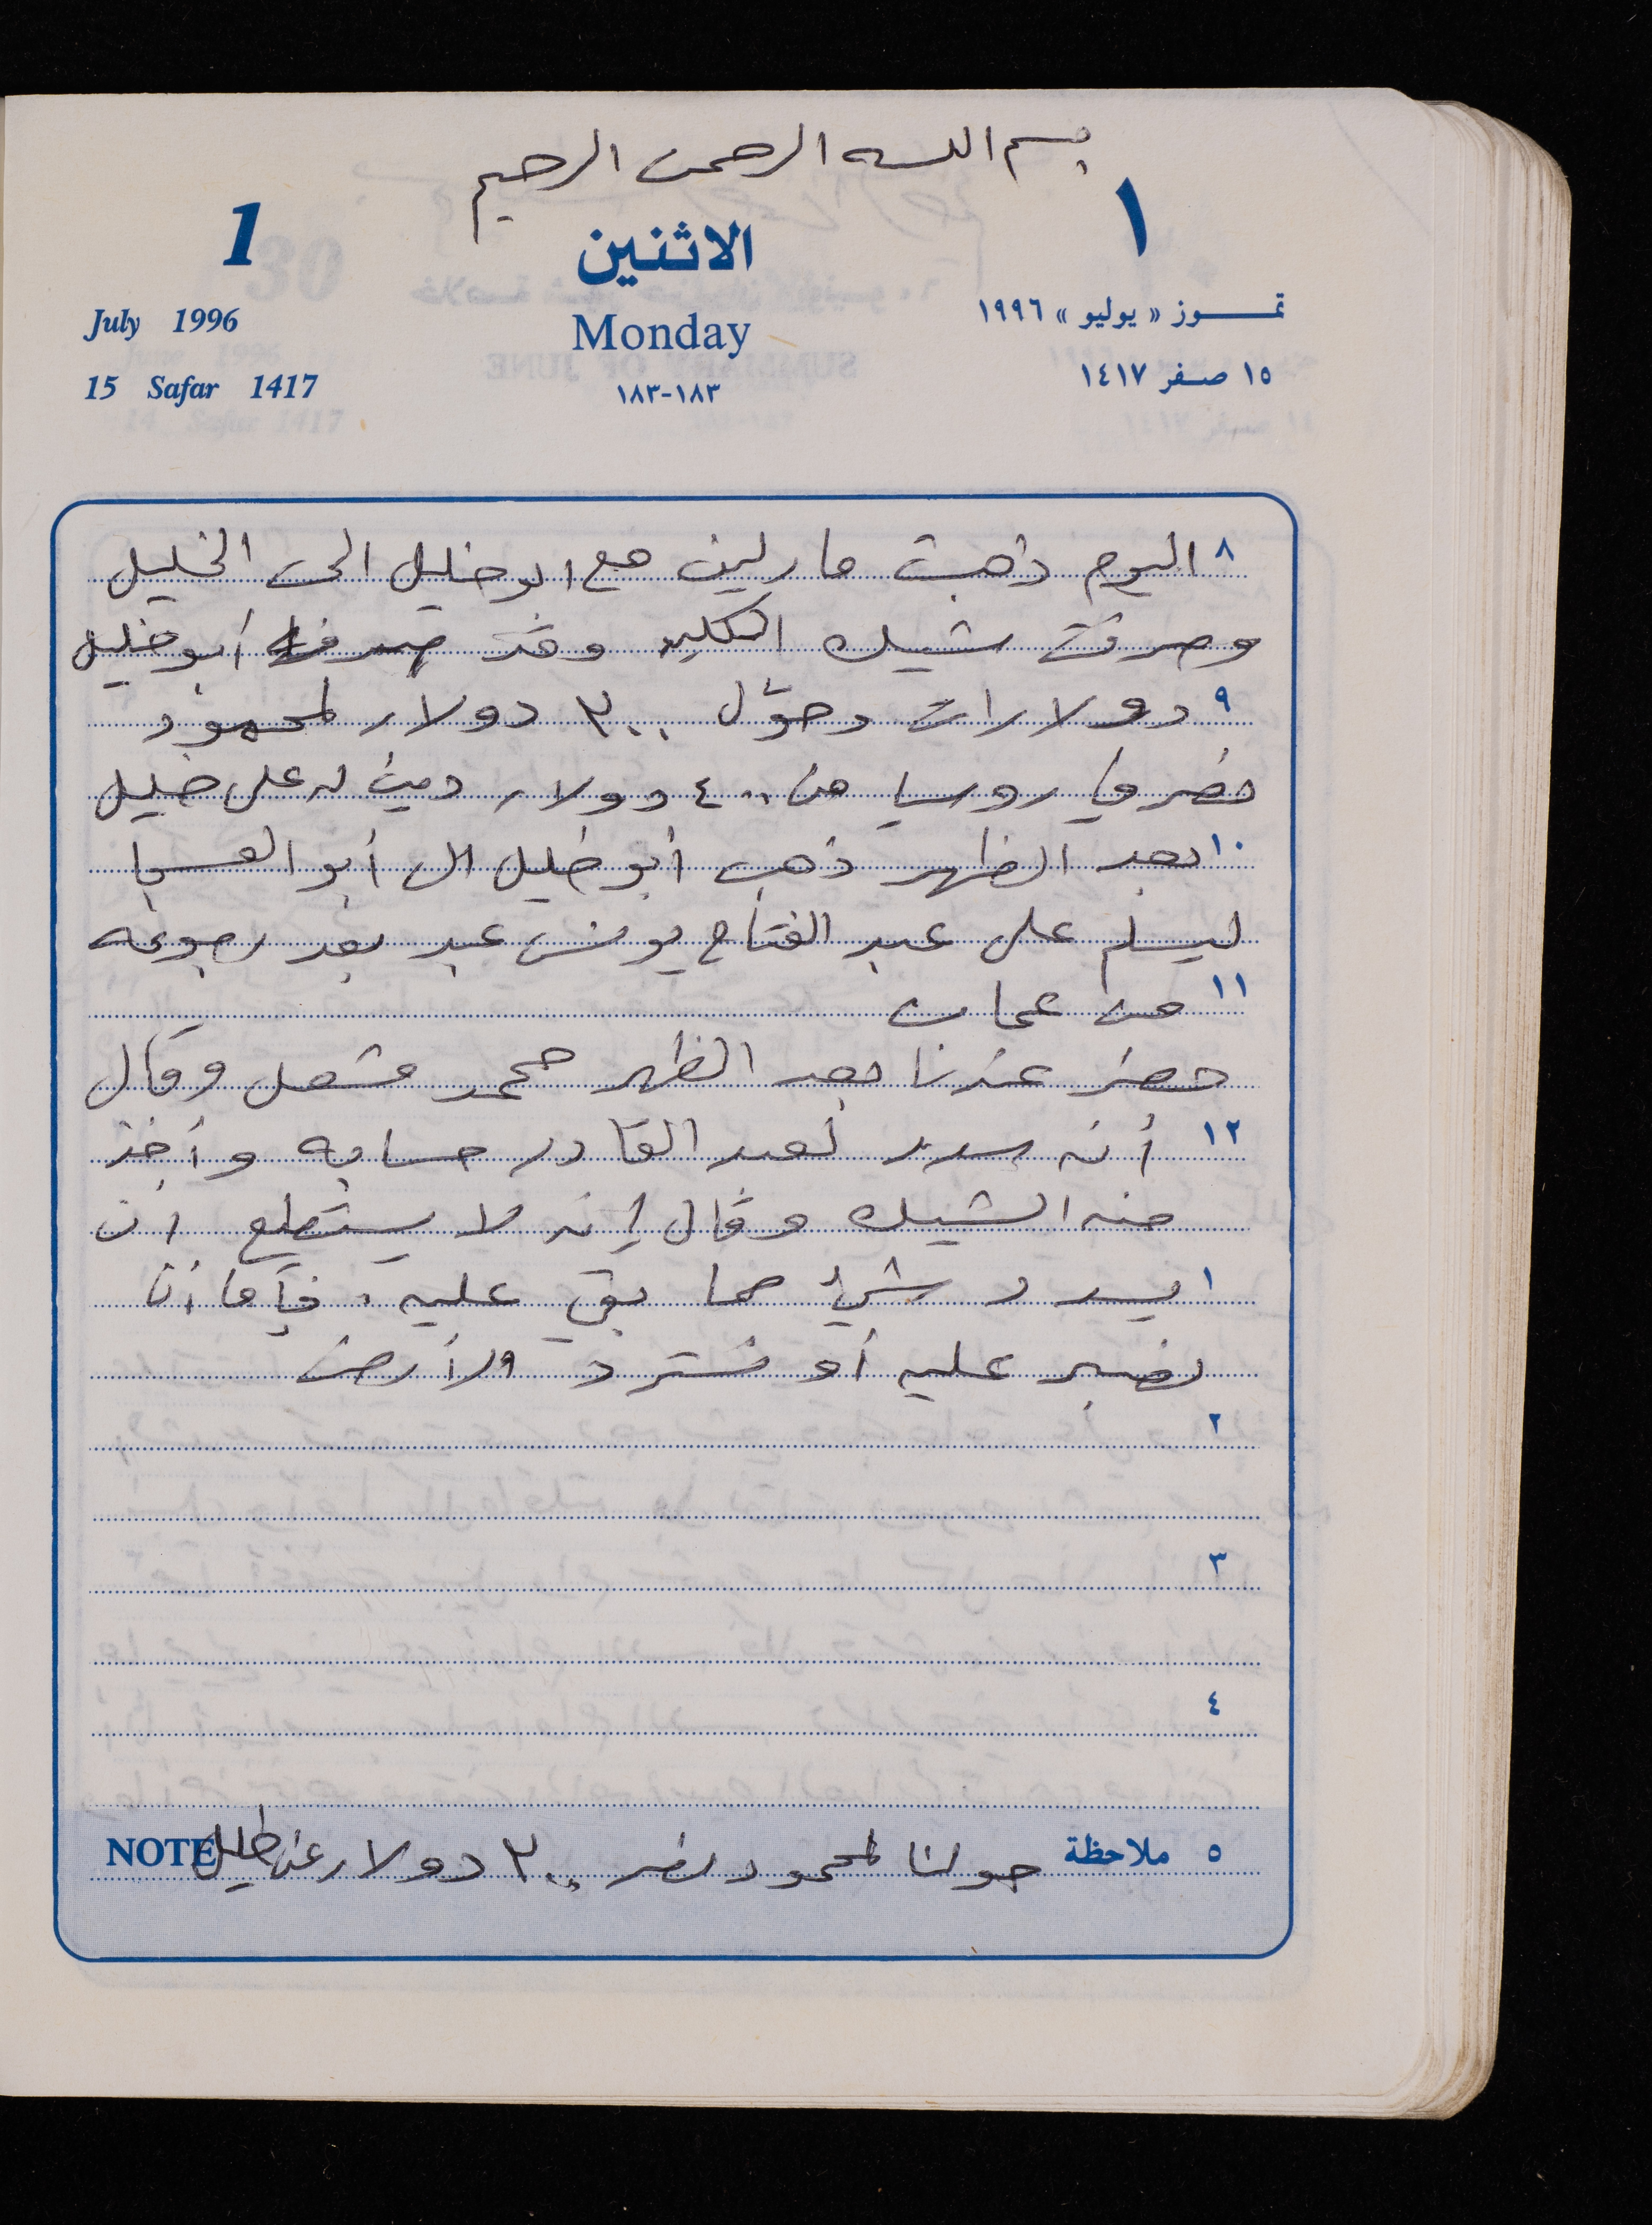 بسم الله الرحمن الرحيم
1 الاثنين ١
July 1996 Monday تمـوز « يوليو » ١٩٩٦
15 Safar 1417 ١٨٣-١٨٣ ١٥ صفر ١٤١٧
٨ اليوم ذهبت مارلين مع ابو خليل الى الخليل
وصرفت شيك وقد صرف أبو خليل
٩ دولارات وحوّل ٢٠٠ دولار لمحمود
خضر في روسيا من ٤٠٠ دولار دين له على خليل
١٠ بعد الظهر ذهب أبو خليل الى أبو العسجا
ليسلم على عبد الفتاح يونس عبد بعد رجوعه
١١ من عمان
حضر عندنا بعد الظهر محمد مشعل وقال
١٢ أنه سدد لعبد القادر حسابه وأخذ
منه الشيك وقال إنه لا يستطيع أن
١ يسدد شيئ مما بقي عليه . فإما أن
نصبر عليه أو نسترد الأرض
٢
٣
٤
٥ ملاحظة حولنا لمحمود ٢٠٠ دولار عن خليل NOTE